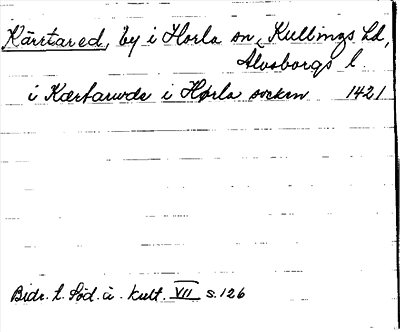 Kärrtared, by i Horla sn, Kullings hd,
Älvsborgs l.
i Kærtarwde i Horla socken 1421
Bidr. t. Söd. ä. kult. VII s. 126